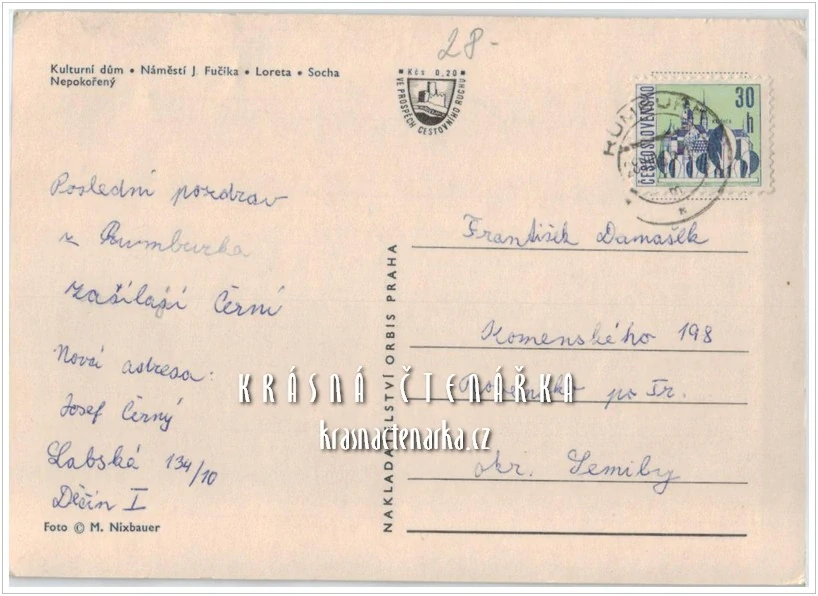 28-
Kulturní dům • Náměstí J. Fučíka • Loreta • Socha
Nepokořený
Kčs 0,20
VE PROSPĚCH CESTOVNÍHO RUCHU
ČESKOSLOVENSKO
30 h
Poslední pozdrav
z Rumburka
zasílají Černí
Nová adresa:
Josef Černý
Labská 134/10
Děčín I
Foto © M. Nixbauer
NAKLADATELSTVÍ ORBIS PRAHA
František Damašek
Komenského 198
Rovensko po Tr.
okr. Semily
KRÁSNÁ ČTENÁŘKA
krasnactenarka.cz